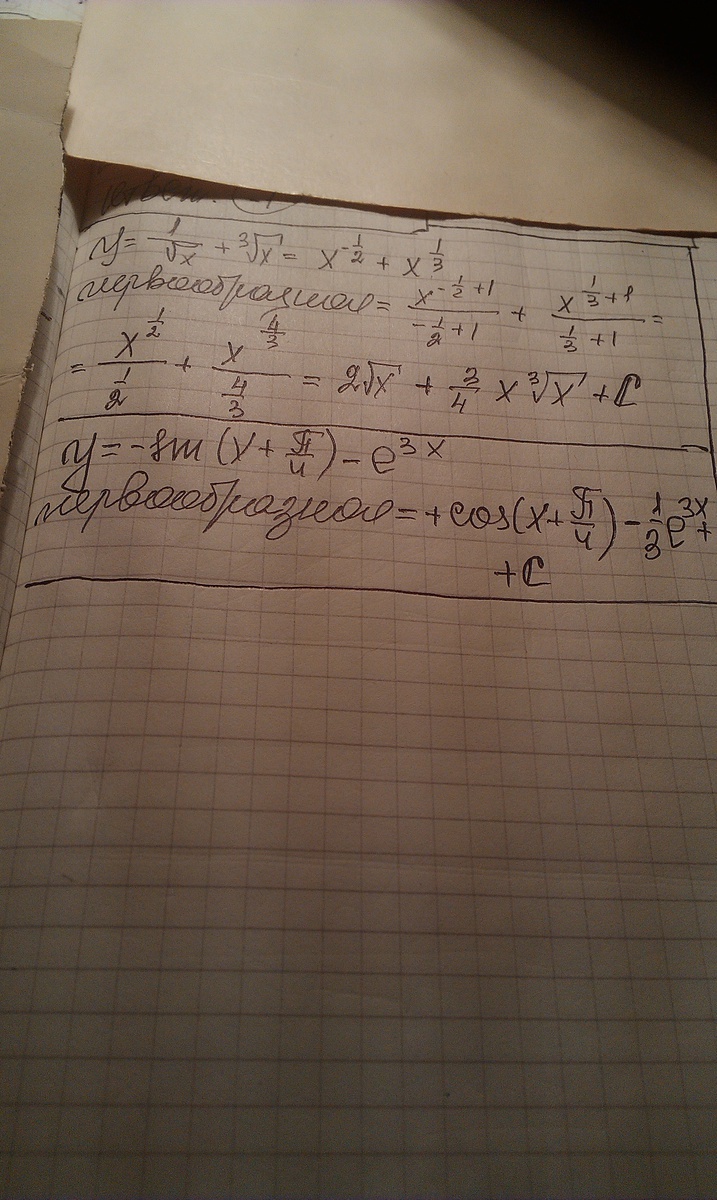 y = 1/√x + ∛x = x^(-1/2) + x^(1/3)
первообразная = x^(-1/2+1)/(-1/2+1) + x^(1/3+1)/(1/3+1) =
= x^(1/2)/(1/2) + x^(4/3)/(4/3) = 2√x + 3/4 x∛x + C
y = -sin(x+π/4) - e^(3x)
первообразная = +cos(x+π/4) - 1/3 e^(3x) +
+ C